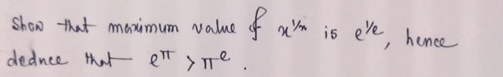 Show that maximum value of x^{1/x} is e^{1/e}, hence
deduce that e^π > π^e.